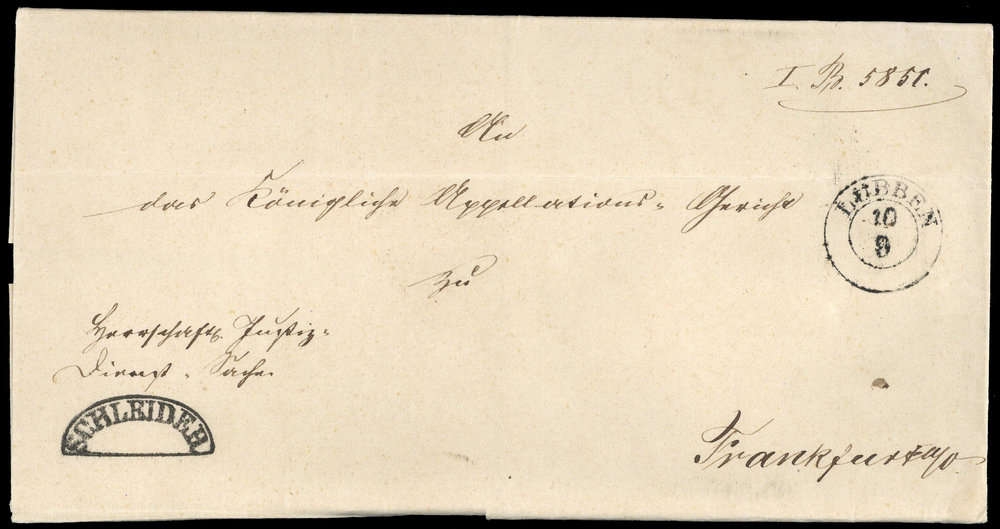 I. B. 5851.
An
das Königliche Appellations- Gericht
LÜBBEN
10
9
zu
Herrschaftl. Justiz-
Dienst- Sache.
SCHLEIDER
Frankfurt a/O